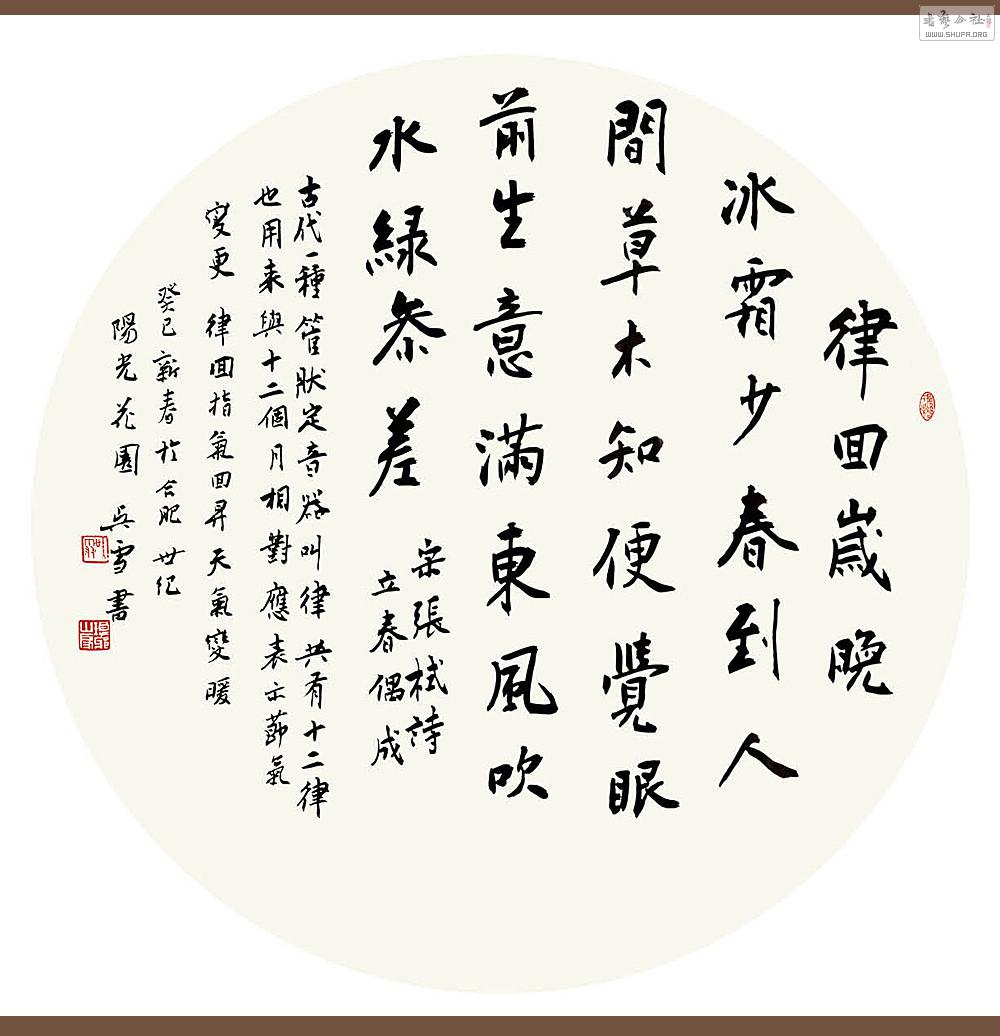 律回歲晚
冰霜少春到人
間草木知便覺眼
前生意滿東風吹
水綠參差
宋張栻詩
立春偶成
古代一種管狀定音器叫律共有十二律
也用来與十二個月相對應表示節氣
變更律回指氣回昇天氣變暖
癸巳新春於合肥世纪
陽光花園吳雪書
WWW.SHUFA.ORG